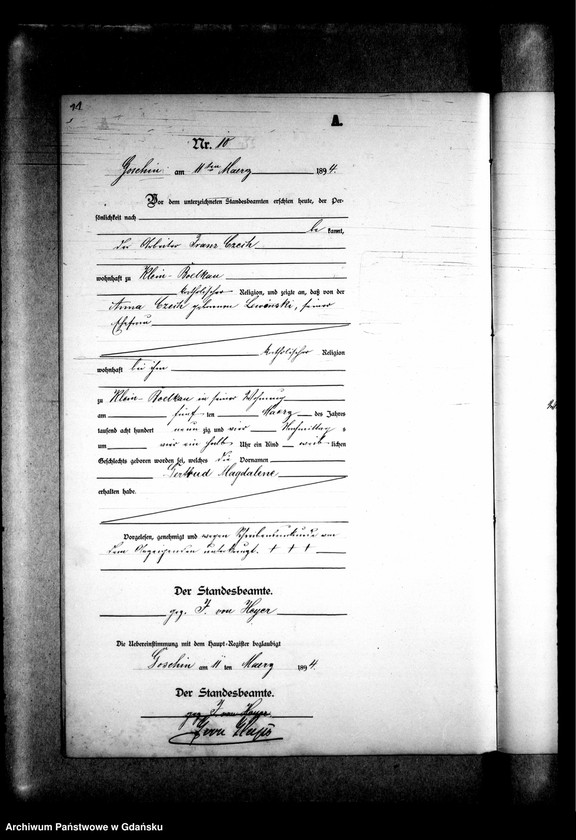 11
A.
Nr. 10
Goschin am 11ten Maerz 1894.
Vor dem unterzeichneten Standesbeamten erschien heute, der Per-
sönlichkeit nach
be kannt,
der Arbeiter Franz Czech
wohnhaft zu Klein-Boelkau
katholischer Religion, und zeigte an, daß von der
Anna Czech geborenen Lewinski, seiner
Ehefrau
katholischer Religion
wohnhaft bei ihm
zu Klein-Boelkau in seiner Wohnung
am fünf ten Maerz des Jahres
tausend acht hundert neun zig und vier Nachmittag s
um vier ein halb Uhr ein Kind weib lichen
Geschlechts geboren worden sei, welches die Vornamen
Gertrud Magdalene
erhalten habe.
Vorgelesen, genehmigt und wegen Schreibensunkunde von
dem Anzeigenden unterkreuzt. + + +
Der Standesbeamte.
gez. F. von Heyer
Die Uebereinstimmung mit dem Haupt-Register beglaubigt
Goschin am 11 ten Maerz 1894.
Der Standesbeamte.
gez. F. von Heyer
Archiwum Państwowe w Gdańsku